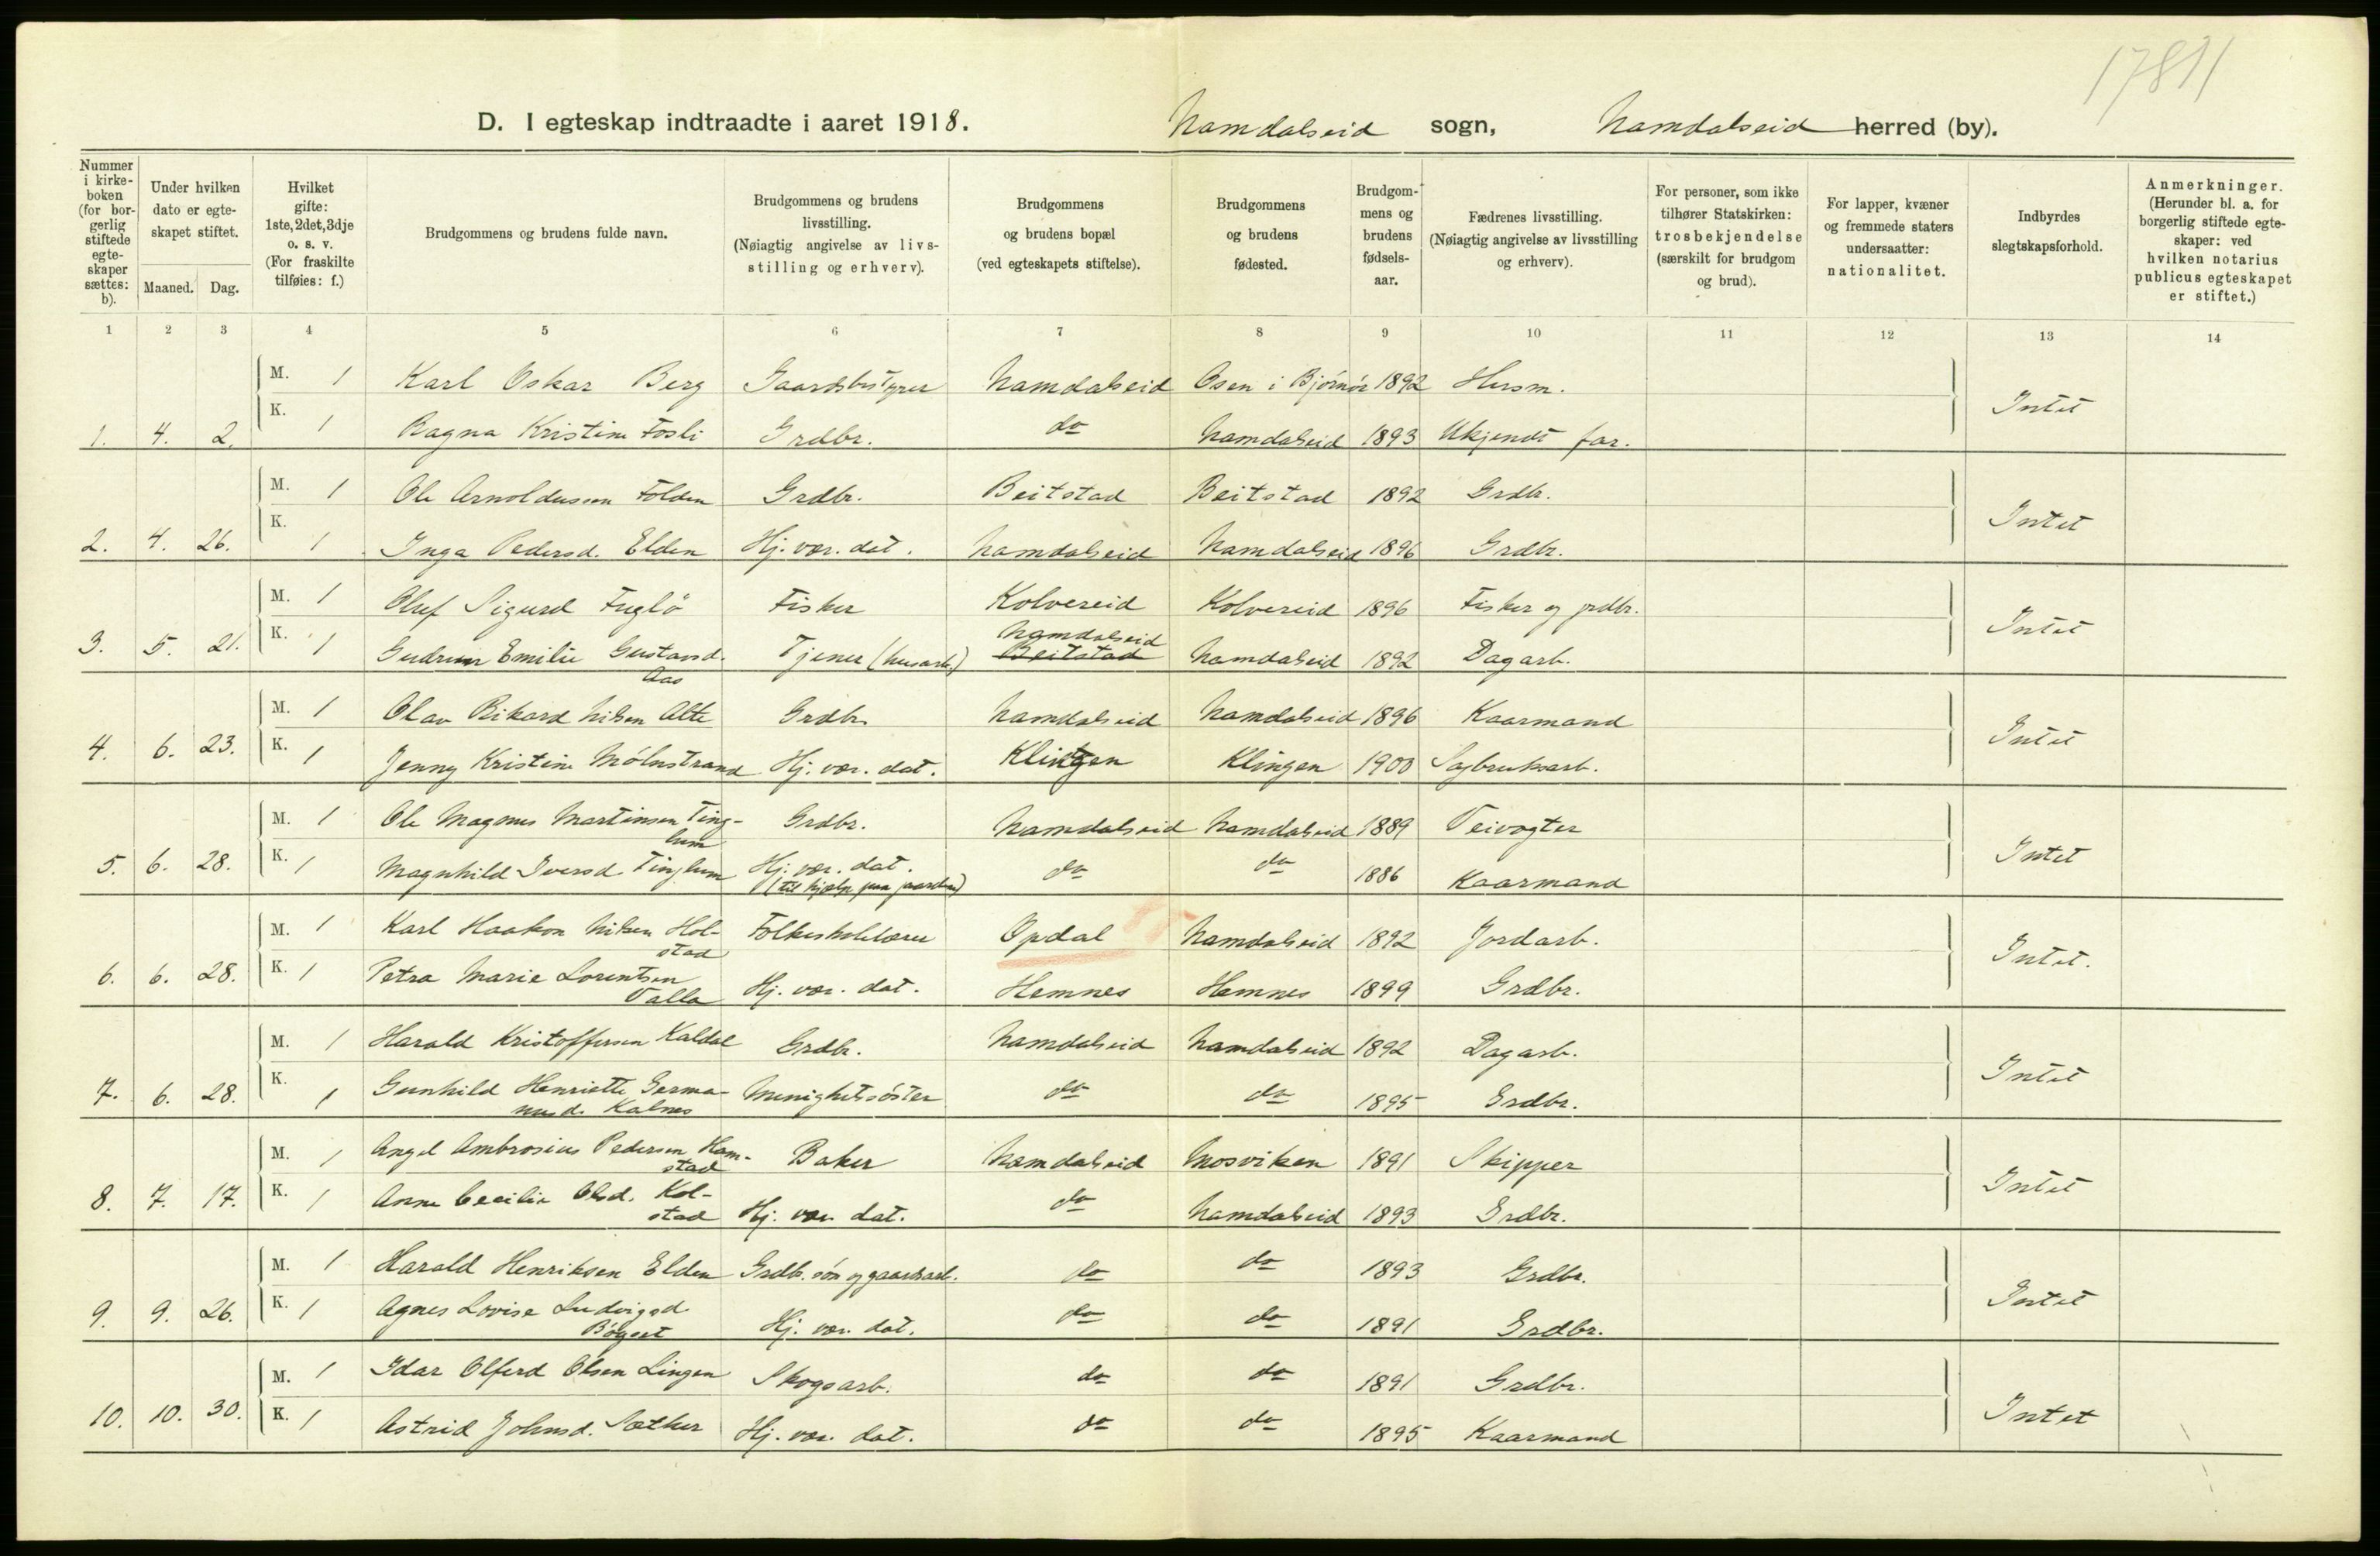 17811
D. I egteskap indtraadte i aaret 1918. Namdalseid sogn, Namdalseid herred (by).
Nummer i kirkeboken (for borgerlig stiftede egteskaper sættes: b).
Under hvilken dato er egteskapet stiftet.
Maaned. Dag.
Hvilket gifte: 1ste, 2det, 3dje o. s. v. (For fraskilte tilføies: f.)
Brudgommens og brudens fulde navn.
Brudgommens og brudens livsstilling. (Nøiagtig angivelse av livsstilling og erhverv).
Brudgommens og brudens bopæl (ved egteskapets stiftelse).
Brudgommens og brudens fødested.
Brudgommens og brudens fødselsaar.
Fædrenes livsstilling. (Nøiagtig angivelse av livsstilling og erhverv).
For personer, som ikke tilhører Statskirken: trosbekjendelse (særskilt for brudgom og brud).
For lapper, kvæner og fremmede staters undersaatter: nationalitet.
Indbyrdes slegtskapsforhold.
Anmerkninger. (Herunder bl. a. for borgerlig stiftede egteskaper: ved hvilken notarius publicus egteskapet er stiftet.)
1 2 3 4 5 6 7 8 9 10 11 12 13 14
M. 1 Karl Oskar Berg Gaardsbestyrer Namdalseid Osen i Bjørnør 1892 Husm.
1. 4. 2. K. 1 Ragna Kristine Fosli Grdbr. do Namdalseid 1893 Ukjendt far. Intet
M. 1 Ole Arnoldussen Folden Grdbr. Beitstad Beitstad 1892 Grdbr.
2. 4. 26. K. 1 Inga Pedersd. Elden Hj. vær. dat. Namdalseid Namdalseid 1896 Grdbr. Intet
M. 1 Oluf Sigurd Fuglö Fisker Kolvereid Kolvereid 1896 Fisker og grdbr.
3. 5. 21. K. 1 Gudrun Emilie Gustavsd. Aas Tjener (husarb.) Namdalseid Beitstad Namdalseid 1892 Dagarb. Intet
M. 1 Olav Rikard Nilsen Alte Grdbr. Namdalseid Namdalseid 1896 Kaarmand
4. 6. 23. K. 1 Jenny Kristine Mölnstrand Hj. vær. dat. Klingen Klingen 1900 Sagbruksarb. Intet
M. 1 Ole Magnus Martinsen Tinglum Grdbr. Namdalseid Namdalseid 1889 Veivogter
5. 6. 28. K. 1 Magnhild Iversd. Tinglum Hj. vær. dat. (til hjælp paa gaarden) do do 1886 Kaarmand Intet
M. 1 Karl Haakon Nilsen Holstad Folkeskolelærer Opdal Namdalseid 1892 Jordarb.
6. 6. 28. K. 1 Petra Marie Lorentsen Valla Hj. vær. dat. Hemnes Hemnes 1899 Grdbr. Intet.
M. 1 Harald Kristoffersen Kaldal Grdbr. Namdalseid Namdalseid 1892 Dagarb.
7. 6. 28. K. 1 Gunhild Henriette Germanusd. Kalnes Menighetsöster do do 1895 Grdbr. Intet
M. 1 Angel Ambrosius Pedersen Hamstad Baker Namdalseid Mosviken 1891 Skipper
8. 7. 17. K. 1 Anne Cecilie Olsd. Kolstad Hj. vær. dat. do Namdalseid 1893 Grdbr. Intet
M. 1 Harald Henriksen Elden Grdbr. søn og gaardsarb. do do 1893 Grdbr.
9. 9. 26. K. 1 Agnes Lovise Ludvigsd. Bøgset Hj. vær. dat. do do 1891 Grdbr. Intet
M. 1 Idar Olferd Olsen Lingen Skogsarb. do do 1891 Grdbr.
10. 10. 30. K. 1 Astrid Johnsd. Sæther Hj. vær. dat. do do 1895 Kaarmand Intet